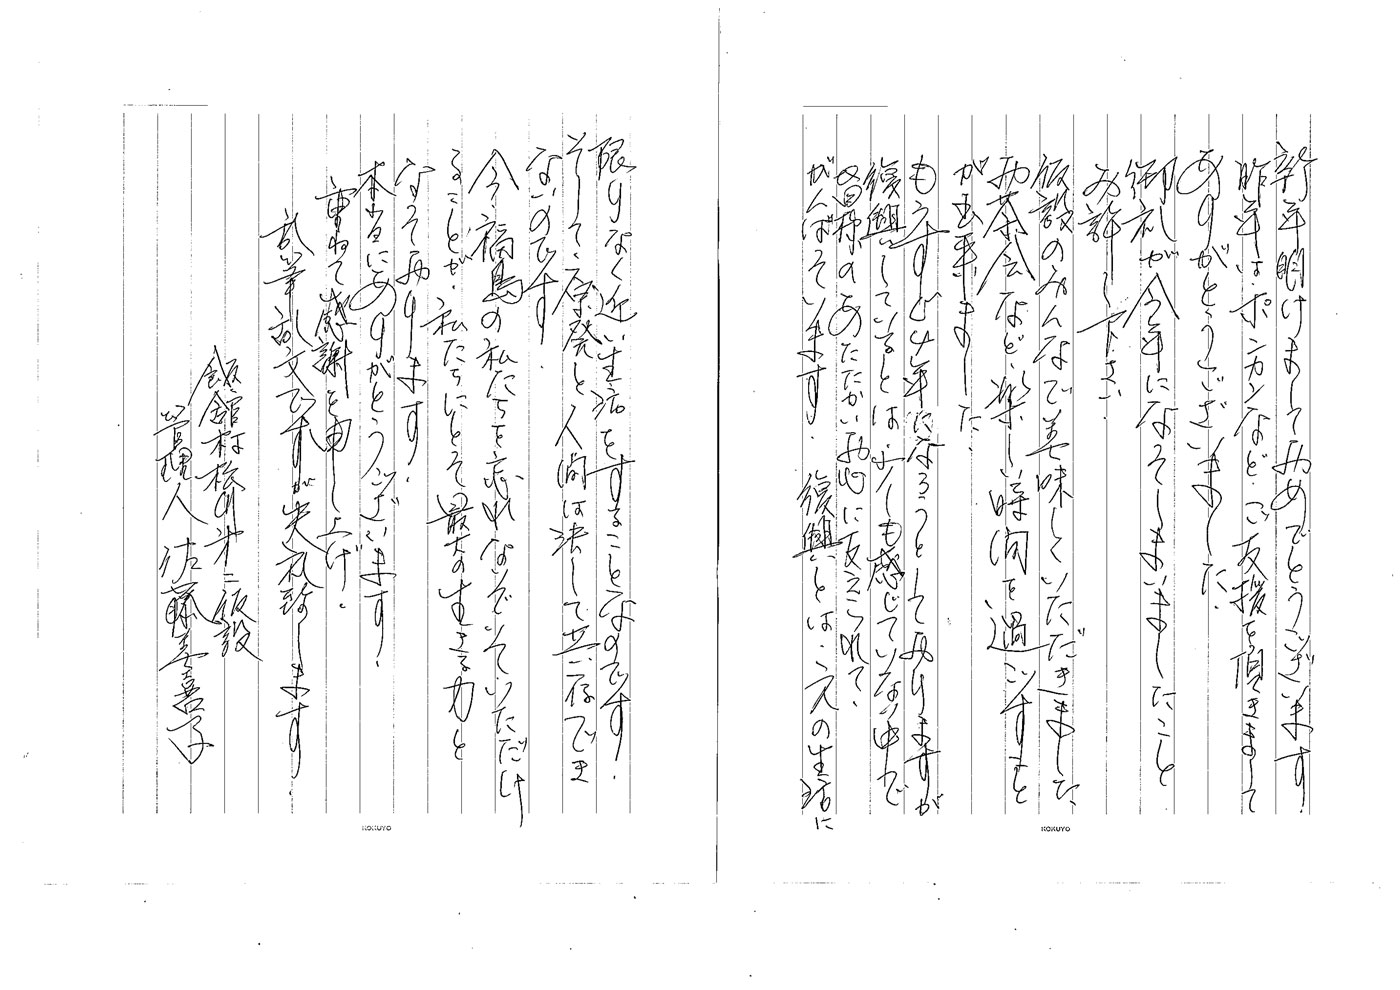 新年明けましておめでとうございます。
昨年は、ポンカンなど、ご支援を頂きまして
ありがとうございました。
御礼が今年になってしまいましたこと
お許し下さい。
仮設のみんなで美味しくいただきました。
お茶会など、楽しい時間を過ごすこと
が出来ました。
もうすぐ4年になろうとしておりますが
復興しているとは、少しも感じていない中で
皆様のあたたかいお心に支えられて、
がんばっています。復興とは、元の生活に
KOKUYO
限りなく近い生活をすることなのです。
そして、原発と人間は決して共存でき
ないのです。
今、福島の私たちを忘れないでいていただけ
ることが、私たちにとって最大の生きる力と
なっております。
本当にありがとうございます。
重ねて感謝を申し上げ、
乱筆乱文ですが失礼致します。
飯舘村松川第二仮設
管理人 佐藤美喜子
KOKUYO